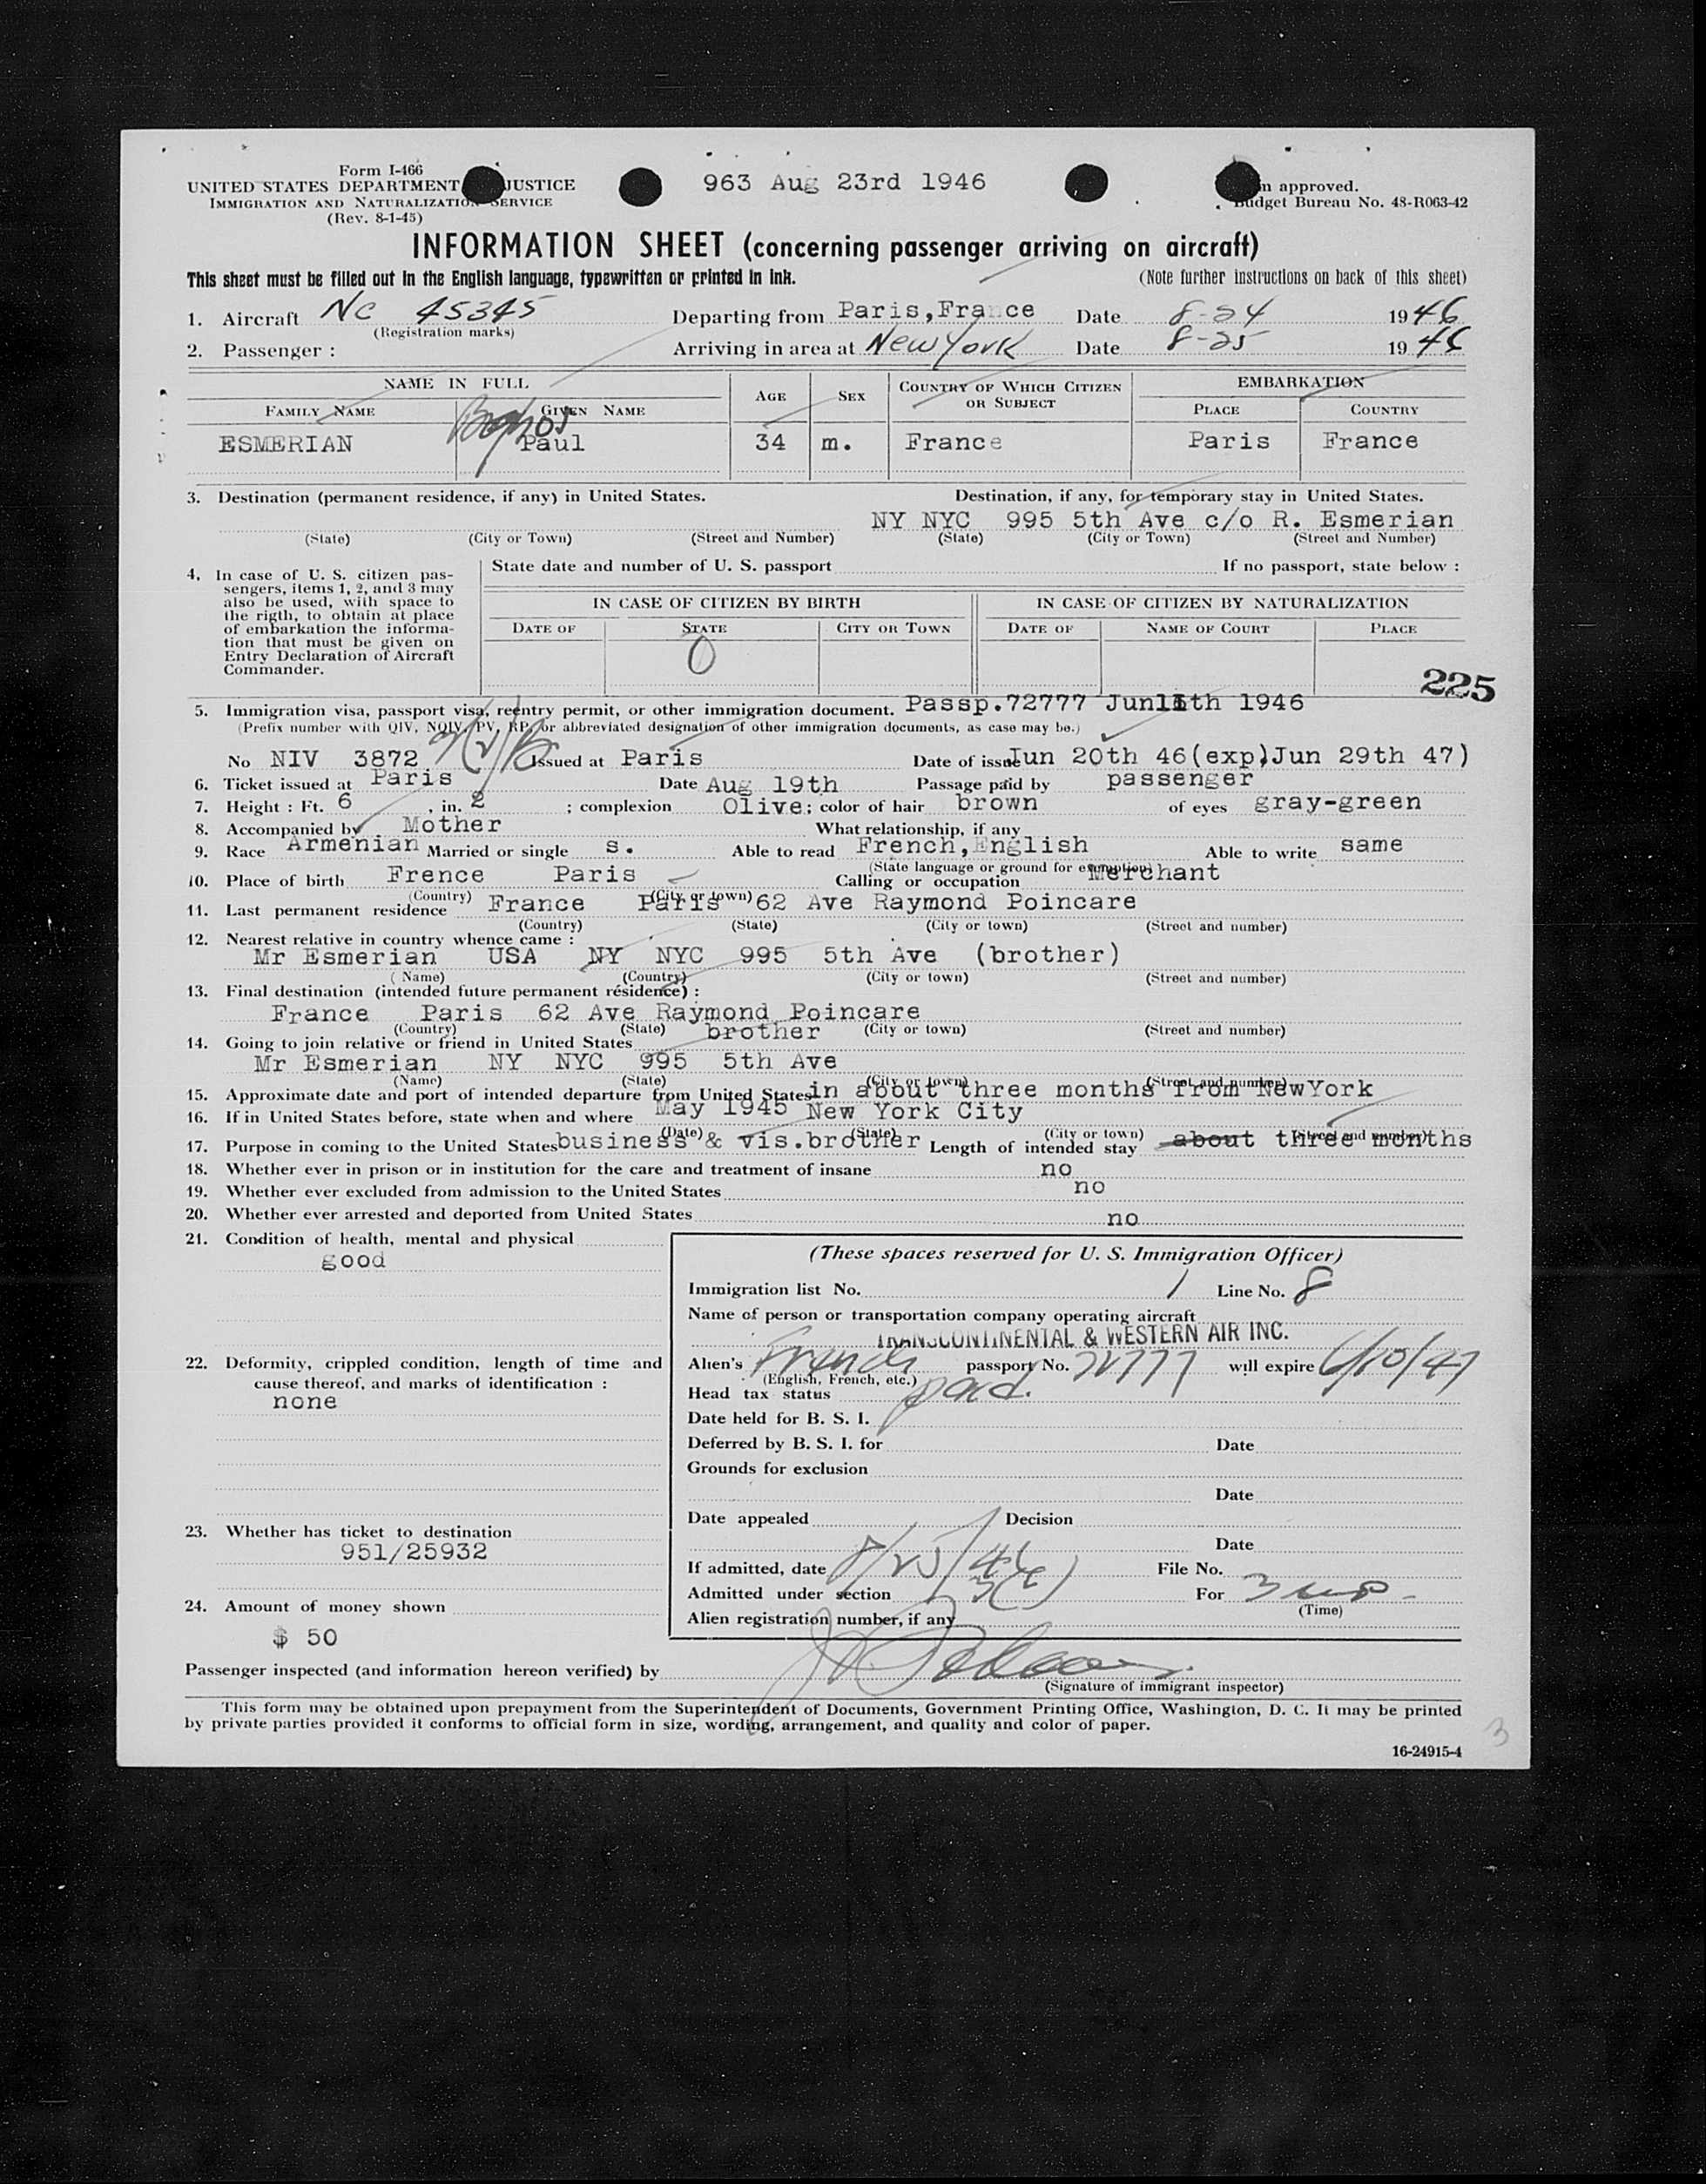 Form I-466
UNITED STATES DEPARTMENT JUSTICE
IMMIGRATION AND NATURALIZATION SERVICE
(Rev. 8-1-45)
963 Aug 23rd 1946
approved.
Budget Bureau No. 43-R063-42
INFORMATION SHEET (concerning passenger arriving on aircraft)
This sheet must be filled out in the English language, typewritten or printed in ink. (Note further instructions on back of this sheet)
1. Aircraft NC 45345 Departing from Paris,France Date 8-24 1946
(Registration marks)
2. Passenger : Arriving in area at New York Date 8-25 1946
NAME IN FULL AGE SEX COUNTRY OF WHICH CITIZEN OR SUBJECT EMBARKATION
FAMILY NAME GIVEN NAME PLACE COUNTRY
Boghos
ESMERIAN Paul 34 m. France Paris France
3. Destination (permanent residence, if any) in United States. Destination, if any, for temporary stay in United States.
NY NYC 995 5th Ave c/o R. Esmerian
(State) (City or Town) (Street and Number) (State) (City or Town) (Street and Number)
4. In case of U. S. citizen pas-
sengers, items 1, 2, and 3 may
also be used, with space to
the rigth, to obtain at place
of embarkation the informa-
tion that must be given on
Entry Declaration of Aircraft
Commander.
State date and number of U. S. passport If no passport, state below :
IN CASE OF CITIZEN BY BIRTH IN CASE OF CITIZEN BY NATURALIZATION
DATE OF STATE CITY OR TOWN DATE OF NAME OF COURT PLACE
0
225
5. Immigration visa, passport visa, reentry permit, or other immigration document. Passp.72777 Jun 11th 1946
(Prefix number with QIV, NQIV, PV, RP, or abbreviated designation of other immigration documents, as case may be.)
No NIV 3872 Issued at Paris Date of issue Jun 20th 46(exp,Jun 29th 47)
6. Ticket issued at Paris Date Aug 19th Passage paid by passenger
7. Height : Ft. 6 , in. 2 ; complexion Olive; color of hair brown of eyes gray-green
8. Accompanied by Mother What relationship, if any
9. Race Armenian Married or single s. Able to read French,English Able to write same
(State language or ground for exemption)
10. Place of birth Frence Paris Calling or occupation Merchant
(Country) (City or town)
11. Last permanent residence France Paris 62 Ave Raymond Poincare
(Country) (State) (City or town) (Street and number)
12. Nearest relative in country whence came :
Mr Esmerian USA NY NYC 995 5th Ave (brother)
(Name) (Country) (City or town) (Street and number)
13. Final destination (intended future permanent résidence) :
France Paris 62 Ave Raymond Poincare
(Country) (State) (City or town) (Street and number)
14. Going to join relative or friend in United States brother
Mr Esmerian NY NYC 995 5th Ave
(Name) (State) (City or town) (Street and number)
15. Approximate date and port of intended departure from United States in about three months from NewYork
16. If in United States before, state when and where May 1945 New York City
(Date) (State) (City or town) (Street and number)
17. Purpose in coming to the United States business & vis.brother Length of intended stay about three months
18. Whether ever in prison or in institution for the care and treatment of insane no
19. Whether ever excluded from admission to the United States no
20. Whether ever arrested and deported from United States no
21. Condition of health, mental and physical
good
22. Deformity, crippled condition, length of time and
cause thereof, and marks of identification :
none
23. Whether has ticket to destination
951/25932
24. Amount of money shown
$ 50
(These spaces reserved for U. S. Immigration Officer)
Immigration list No. 1 Line No. 8
Name of person or transportation company operating aircraft
TRANSCONTINENTAL & WESTERN AIR INC.
Alien's French passport No. 72777 will expire 6/10/47
(English, French, etc.)
Head tax status paid.
Date held for B. S. I.
Deferred by B. S. I. for Date
Grounds for exclusion
Date
Date appealed Decision
Date
If admitted, date 8/25/46 File No.
Admitted under section 3(2) For 3 mos.
(Time)
Alien registration number, if any
Passenger inspected (and information hereon verified) by
(Signature of immigrant inspector)
This form may be obtained upon prepayment from the Superintendent of Documents, Government Printing Office, Washington, D. C. It may be printed
by private parties provided it conforms to official form in size, wording, arrangement, and quality and color of paper.
3
16-24915-4